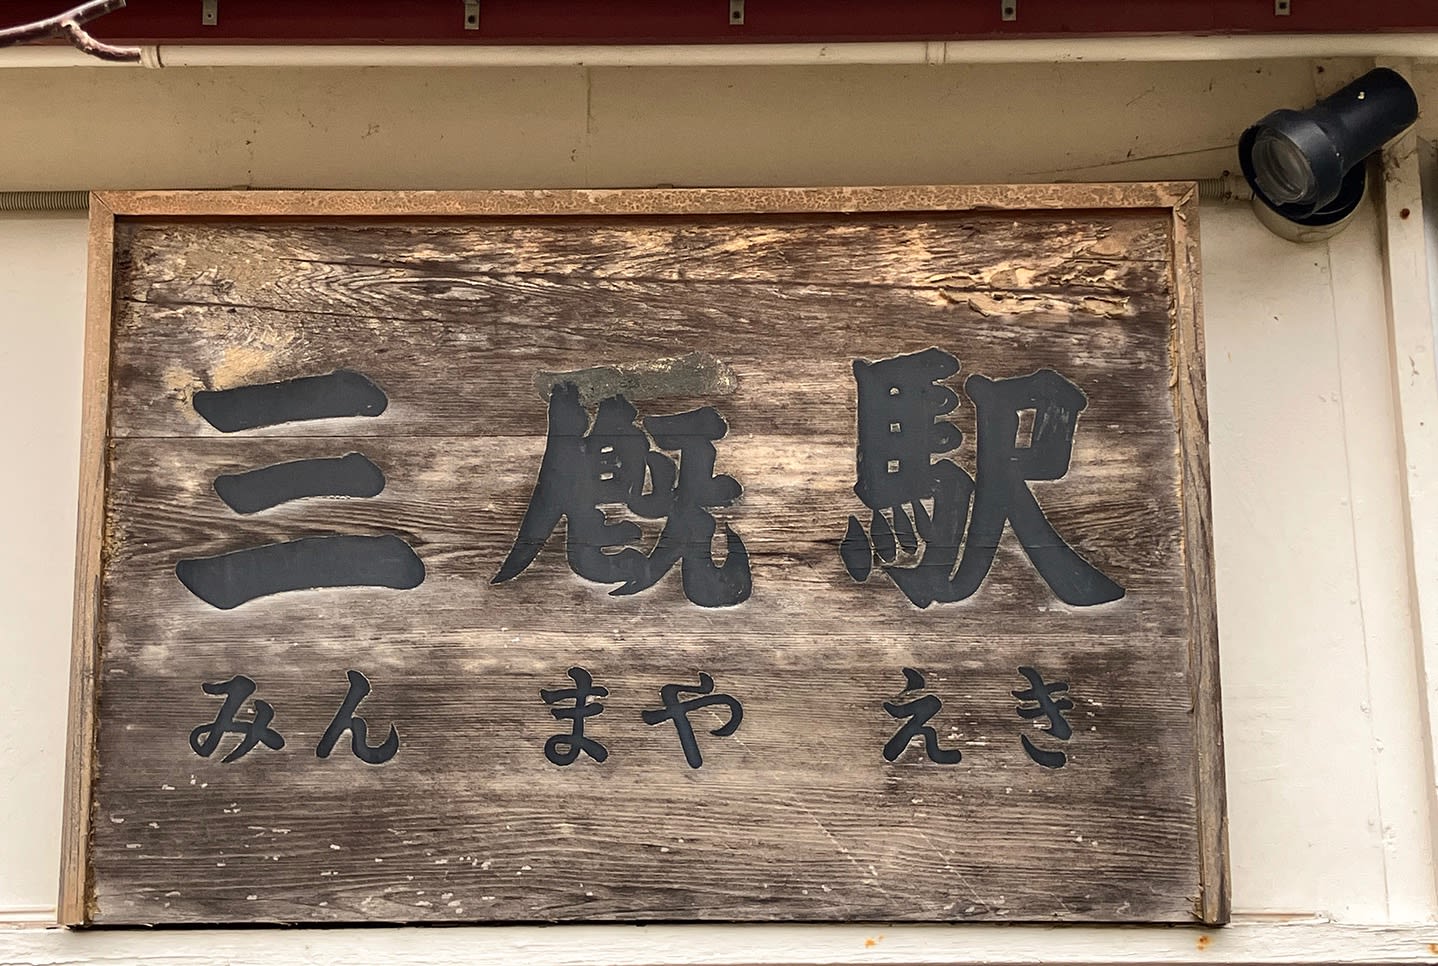 三厩駅
みんまやえき